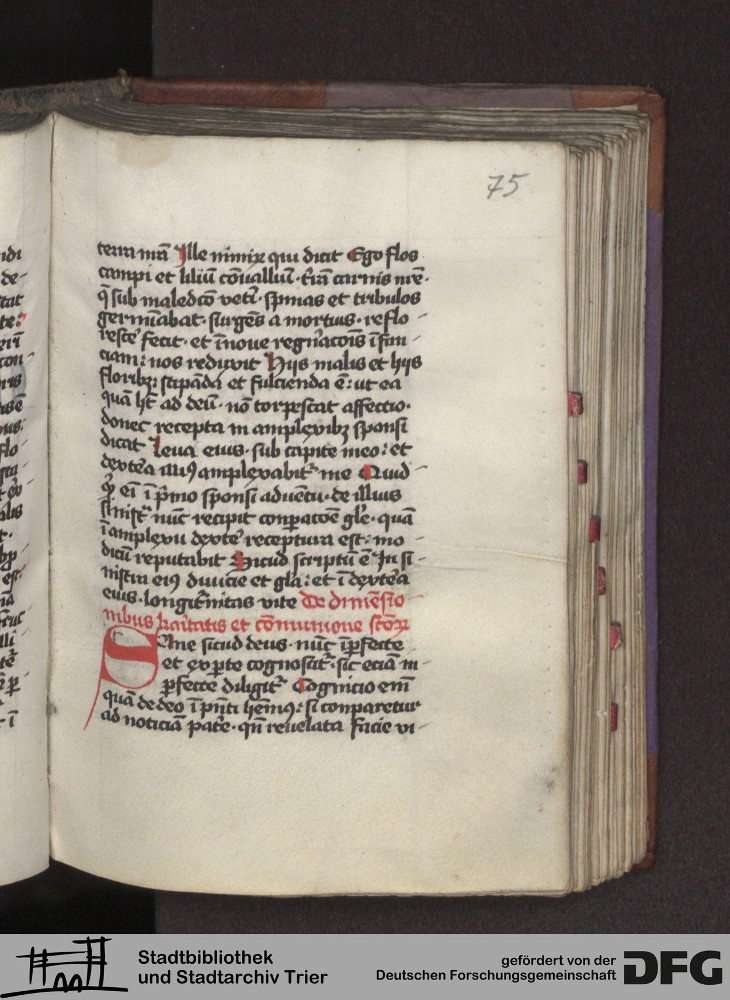 75
terra mea Ille nimirum qui dicit Ego flos
campi et lilium conuallium. terra carnis nostre.
que sub maledicto veteri. spinas et tribulos
germinabat. surgens a mortuis. reflo-
rescere fecit. et in noue regnacionis infan-
ciam: nos reduxit Hijs malis et hijs
floribus: stipanda et fulcienda est: ut ea
quam habet ad deum. non torpescat affectio.
donec recepta in amplexibus sponsi
dicat leua eius. sub capite meo: et
dextera illius amplexabitur me Quid-
enim in primo sponsi aduentu. de illius
sinistra nunc recipit conparacione glorie. quam
in amplexu dextere receptura est: mo-
dicum reputabit Sicud scriptum est In si-
nistra eius diuicie et gloria: et in dextera
eius. longiturnitas vite De dimensio-
nibus karitatis et communione sanctorum
Sane sicud deus. nunc inperfecte
et ex parte cognoscitur. sic eciam in-
perfecte diligitur Cognicio enim
quam de deo in presenti habemus: si comparetur
ad noticiam patrie. quando reuelata facie vi-
Stadtbibliothek
und Stadtarchiv Trier
gefördert von der
Deutschen Forschungsgemeinschaft
DFG